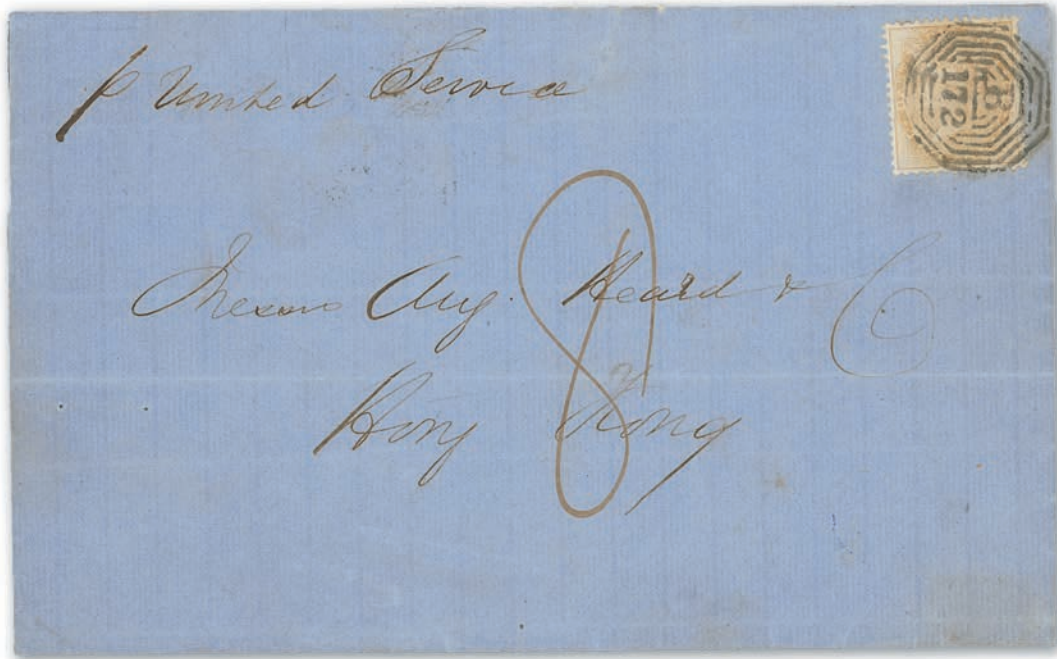 p United Service
B
172
Messrs Aug. Heard & Co
Hong Kong
8